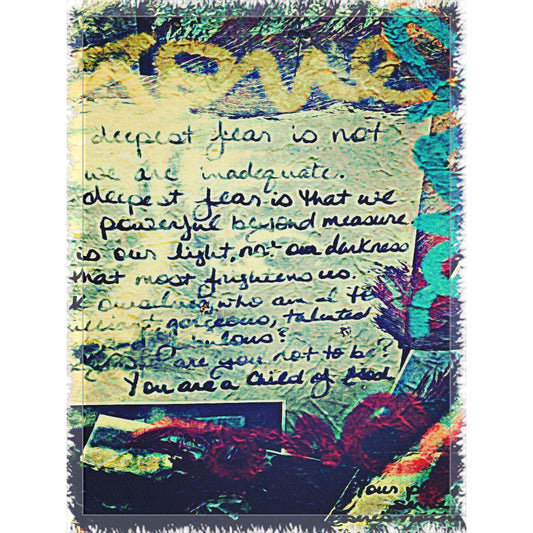 deepest fear is not
we are inadequate.
deepest fear is that we
powerful beyond measure.
is our light, not our darkness
that most frightens us.
ourselves, who am I to
gorgeous, talented
fabulous?
are you not to be?
You are a child of God
Your